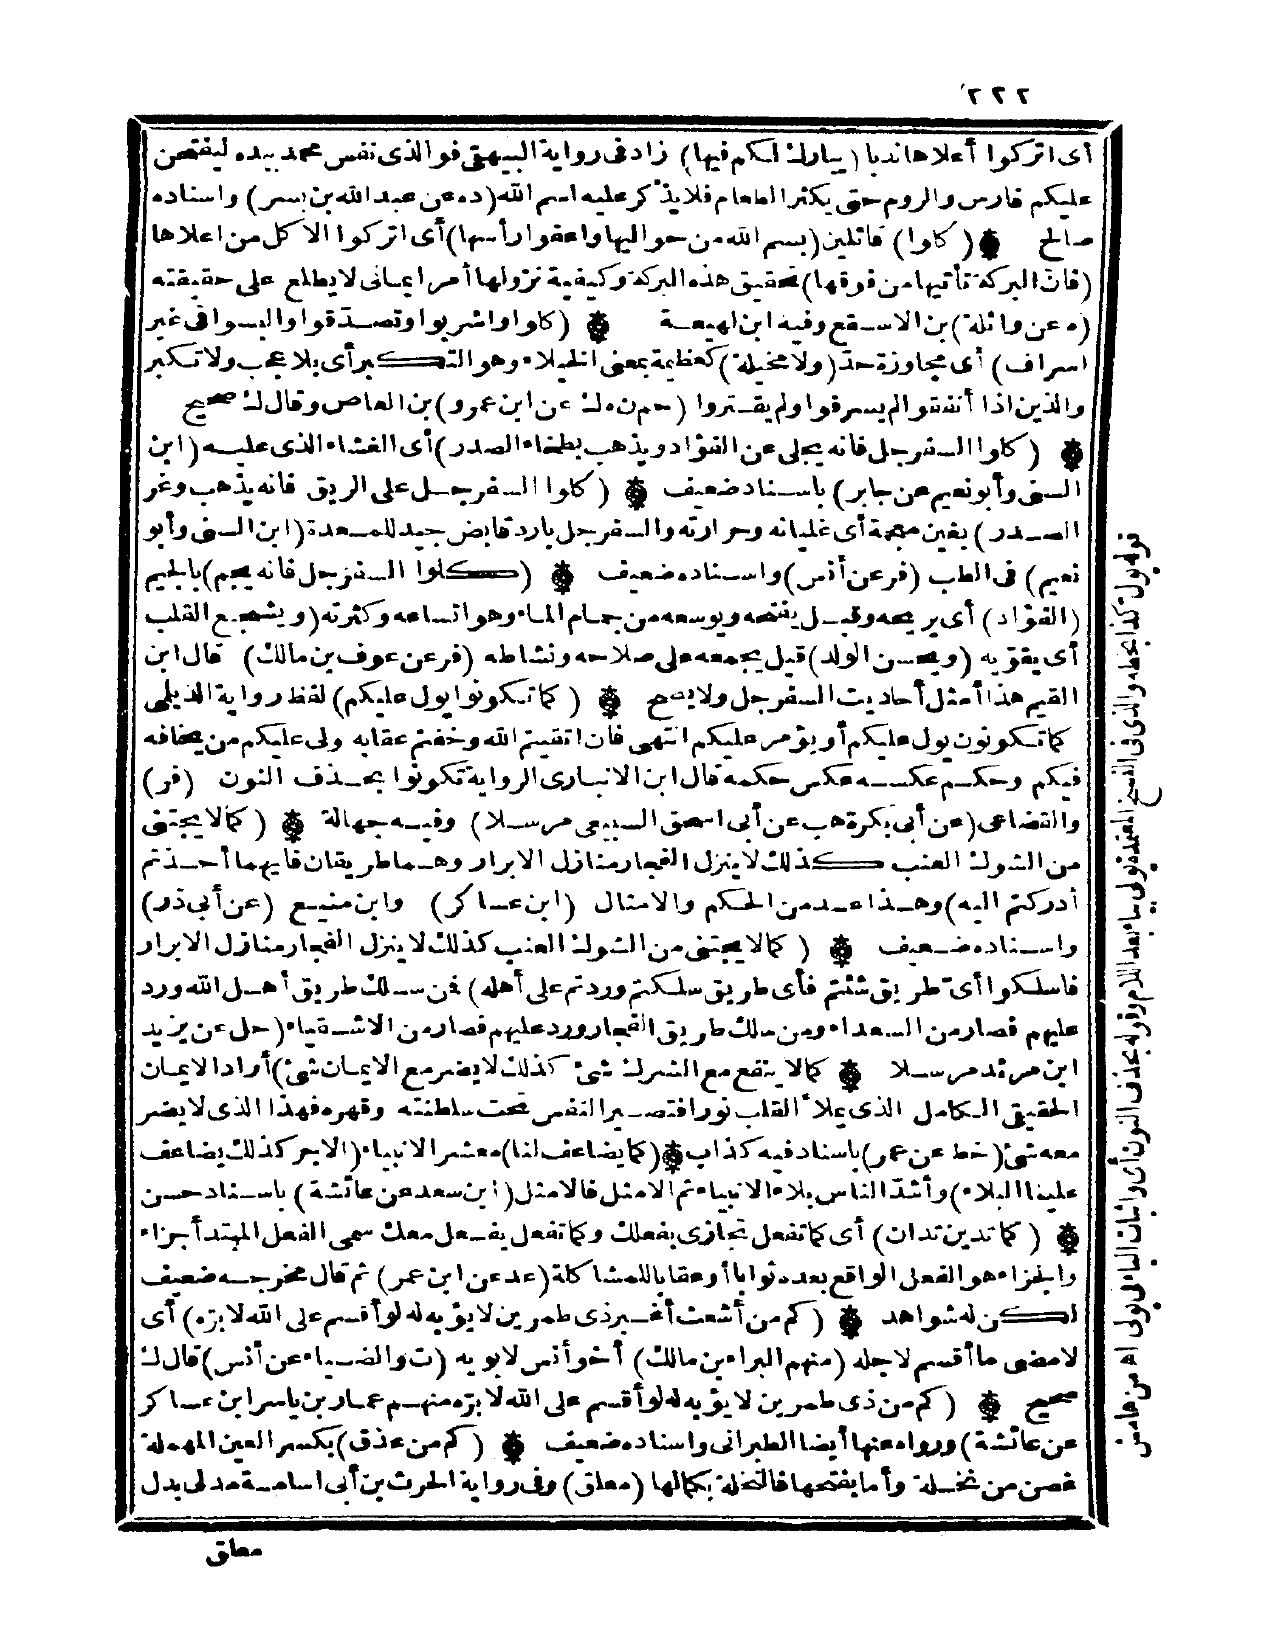 ٢٢٢
أى اتركوا أعلاها ندبا (يبارك لكم فيها) زاد فى رواية البيهقى فوالذى نفس محمد بيده ليفتحن
عليكم فارس والروم حتى يكثر الطعام فلا يذكر عليه اسم الله (د ه عن عبد الله بن بسر) واسناده
صالح ❁ (كلوا) قائلين (بسم الله من حواليها واعفوا رأسها) أى اتركوا الاكل من اعلاها
(فان البركة تأتيها من فوقها) تحقيق هذه البركة وكيفية نزولها أمر ايمانى لا يطلع على حقيقته
(ه عن واثلة) بن الاسقع وفيه ابن لهيعة ❁ (كلوا واشربوا وتصدقوا والبسوا فى غير
اسراف) أى مجاوزة حد (ولا مخيلة) كعظيمة بمعنى الخيلاء وهو التكبر أى بلا عجب ولا تكبر
والذين اذا أنفقوا لم يسرفوا ولم يقتروا (حم ن ه ك عن ابن عمرو) بن العاص وقال ك صحيح
❁ (كلوا السفرجل فانه يجلى عن الفؤاد ويذهب بطخاء الصدر) أى الغشاء الذى عليه (ابن
السنى وأبو نعيم عن جابر) باسناد ضعيف ❁ (كلوا السفرجل على الريق فانه يذهب وغر
الصدر) بغين معجمة أى غليانه وحرارته والسفرجل بارد قابض جيد للمعدة (ابن السنى وأبو
نعيم) فى الطب (فر عن أنس) واسناده ضعيف ❁ (كلوا السفرجل فانه يجم) بالجيم
(الفؤاد) أى يريحه وقيل يفتحه ويوسعه من جمام الماء وهو اتساعه وكثرته (ويشجع القلب
أى يقويه (ويحسن الولد) قيل يجمعه على صلاحه ونشاطه (فر عن عوف بن مالك) قال ابن
القيم هذا أمثل أحاديث السفرجل ولا يصح ❁ (كما تكونوا يول عليكم) لفظ رواية الديلى
كما تكونون يول عليكم أو يؤمر عليكم انتهى فان اتقيتم الله وخفتم عقابه ولى عليكم من يخافه
فيكم وحكم عكسه عكس حكمه قال ابن الانبارى الرواية تكونوا بحذف النون (فر)
والقضاعى (عن أبى بكرة هب عن أبى اسحق السبيعى مرسلا) وفيه جهالة ❁ (كما لا يجتنى
من الشوك العنب كذلك لا ينزل الفجار منازل الابرار وهما طريقان فايهما أخذتم
أدركتم اليه) وهذا عد من الحكم والامثال (ابن عساكر) وابن منيع (عن أبى ذر)
واسناده ضعيف ❁ (كما لا يجتنى من الشوك العنب كذلك لا ينزل الفجار منازل الابرار
فاسلكوا أى طريق شئتم فأى طريق سلكتم وردتم على أهله) فمن سلك طريق أهل الله ورد
عليهم فصار من السعداء ومن سلك طريق الفجار ورد عليهم فصار من الاشقياء (حل عن يزيد
ابن مرثد مرسلا ❁ كما لا ينفع مع الشرك شئ كذلك لا يضر مع الايمان شئ) أراد الايمان
الحقيقى الكامل الذى يملأ القلب نورا فتصير النفس تحت سلطنته وقهره فهذا الذى لا يضر
معه شئ (خط عن عمر) باسناد فيه كذاب ❁ (كما يضاعف لنا) معشر الانبياء (الاجر كذلك يضاعف
علينا البلاء) وأشد الناس بلاء الانبياء ثم الامثل فالامثل (ابن سعد عن عائشة) باسناد حسن
❁ (كما تدين تدان) أى كما تفعل تجازى بفعلك وكما تفعل يفعل معك سمى الفعل المبتدأ جزاء
والجزاء هو الفعل الواقع بعده ثوابا أو عقابا للمشاكلة (عد عن ابن عمر) ثم قال مخرجه ضعيف
لكن له شواهد ❁ (كم من أشعث أغبر ذى طمرين لا يؤبه له لو أقسم على الله لابره) أى
لامضى ما أقسم لاجله (منهم البراء بن مالك) أخو أنس لابويه (ت والضياء عن أنس) قال ك
صحيح ❁ (كم من ذى طمرين لا يؤبه له لو أقسم على الله لابره منهم عمار بن ياسر ابن عساكر
عن عائشة) ورواه عنها أيضا الطبرانى واسناده ضعيف ❁ (كم من عذق) بكسر العين المهملة
غصن من نخلة وأما بفتحها فالنخلة بكمالها (معلق) وفى رواية الحرث بن أبى اسامة مدلى بدل
معلق
قوله يول كذا بخطه والذى فى النسخ المعتمدة يولى بياء بعد اللام وقوله بحذف النون أى واثبات الياء فى يولى اه من هامش